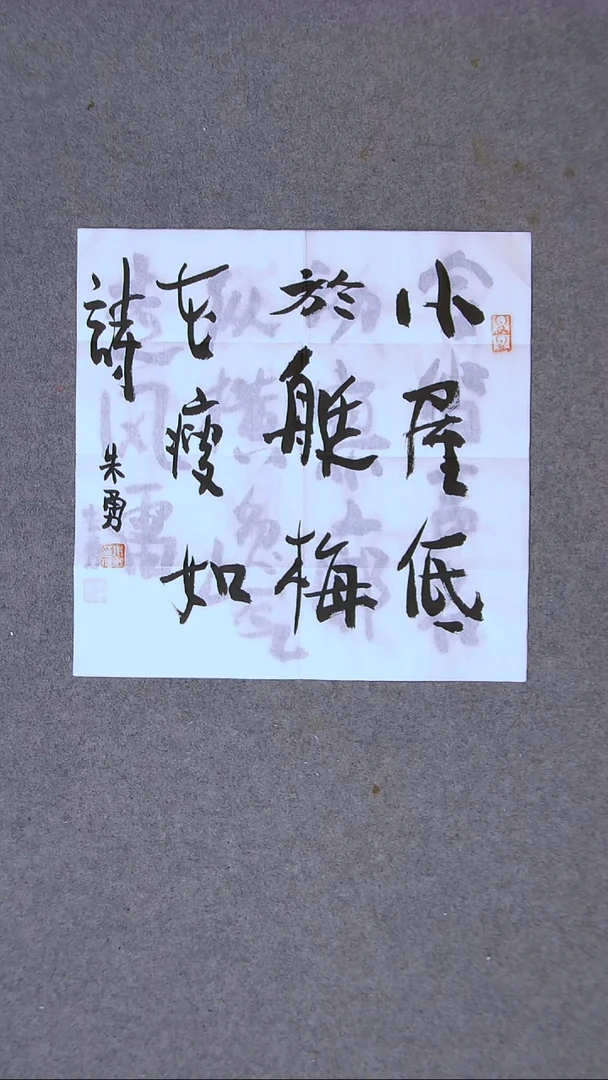 小屋低
於艇梅
花瘦如
詩
朱勇